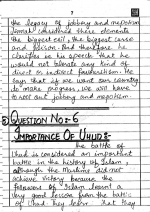 7
the legacy of jobbery and nepotism
Jinnah considered these elements
the biggest evil, the biggest curse
and poison. And therefore he
clarifies in his speech that he
would not tolerate any kind of
direct or indirect favouritism. He
says that if we want our country
to make progress, we will have
to root out jobbery and nepotism.
QUESTION No:- 6
IMPORTANCE OF UHUD:-
the battle of
Uhad is considered an important
battle in the history of Islam,
although the Muslims did not
achieve victory because the
followers of Islam learnt a
very good lesson from the battle
of Uhad they learnt that they